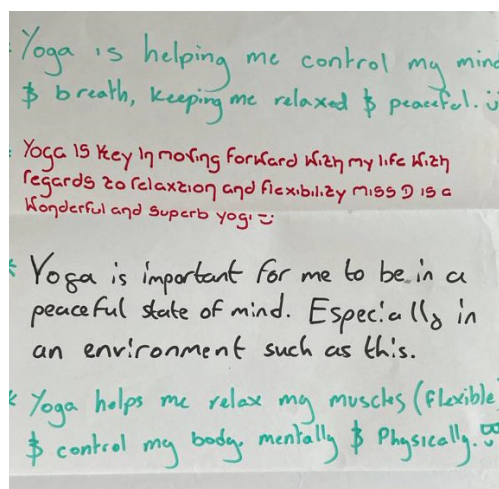 * Yoga is helping me control my mind
& breath, keeping me relaxed & peaceful. :)
* Yoga is key in moving forward with my life with
regards to relaxtion and flexibility miss D is a
wonderful and superb yogi :)
* Yoga is important for me to be in a
peaceful state of mind. Especially in
an environment such as this.
* Yoga helps me relax my muscles (flexible)
& control my body. mentally & Physically.